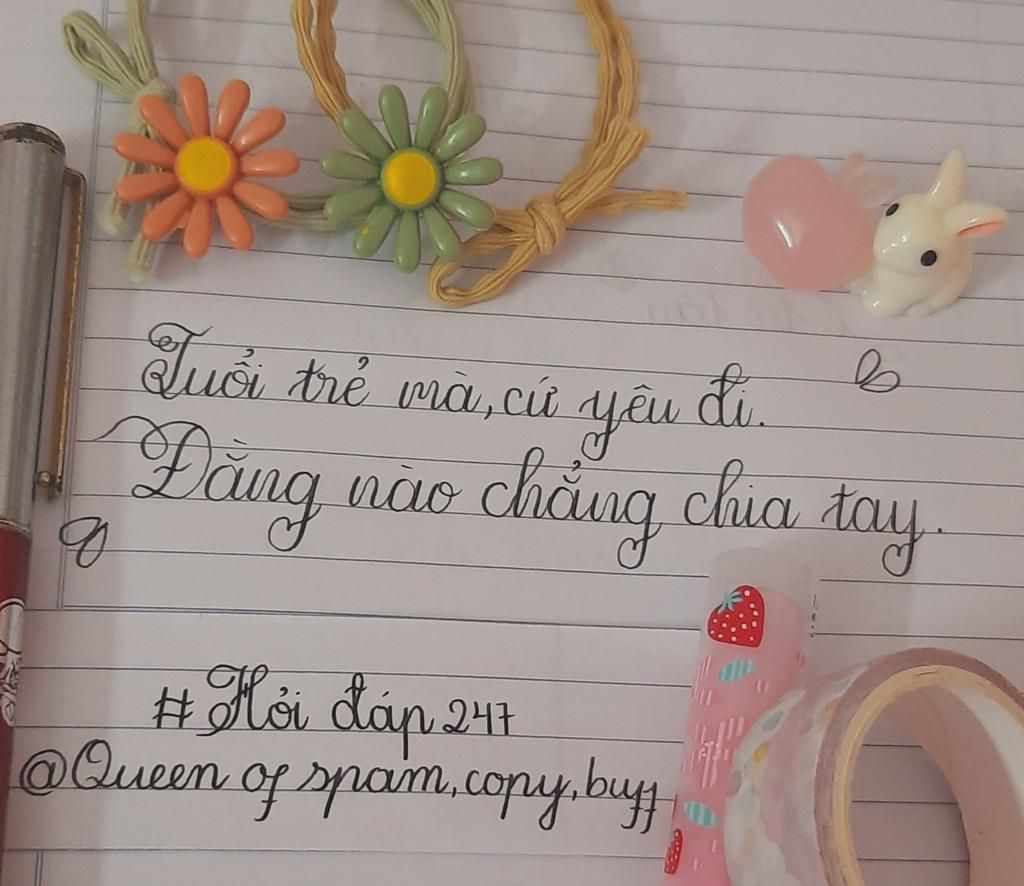 Tuổi trẻ mà, cứ yêu đi.
Đằng nào chẳng chia tay.
#Hỏi đáp 247
@Queen of spam, copy, buff